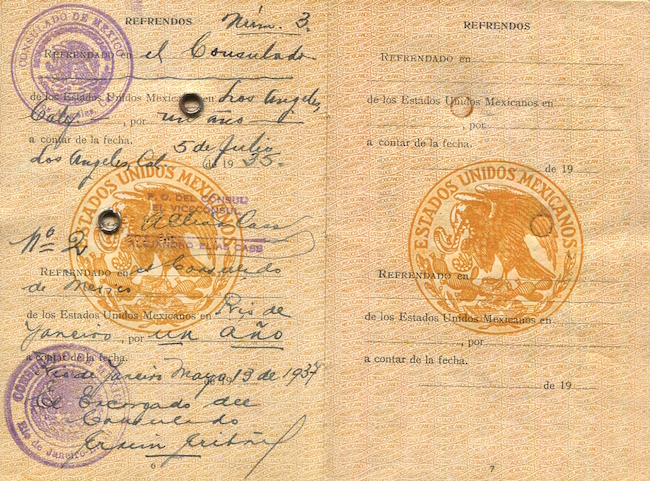 REFRENDOS Núm. 3.
CONSULADO DE MEXICO
REFRENDADO en el Consulado
de los Estados Unidos Mexicanos en Los Angeles,
Calif, por un año
a contar de la fecha.
Los Angeles, Cal. 5 de Julio de 1935.
P. O. DEL CONSUL
EL VICECONSUL
ALEJANDRO ELIAS CASS
ESTADOS UNIDOS MEXICANOS
Nº 2
REFRENDADO en el Consulado
de Mexico
de los Estados Unidos Mexicanos en Río de
Janeiro, por un año
a contar de la fecha.
Rio de Janeiro Mayo 13 de 1937
El Encargado del
Consulado
Rio de Janeiro
6
REFRENDOS
REFRENDADO en
de los Estados Unidos Mexicanos en
, por
a contar de la fecha.
de 19
ESTADOS UNIDOS MEXICANOS
REFRENDADO en
de los Estados Unidos Mexicanos en
, por
a contar de la fecha.
de 19
7